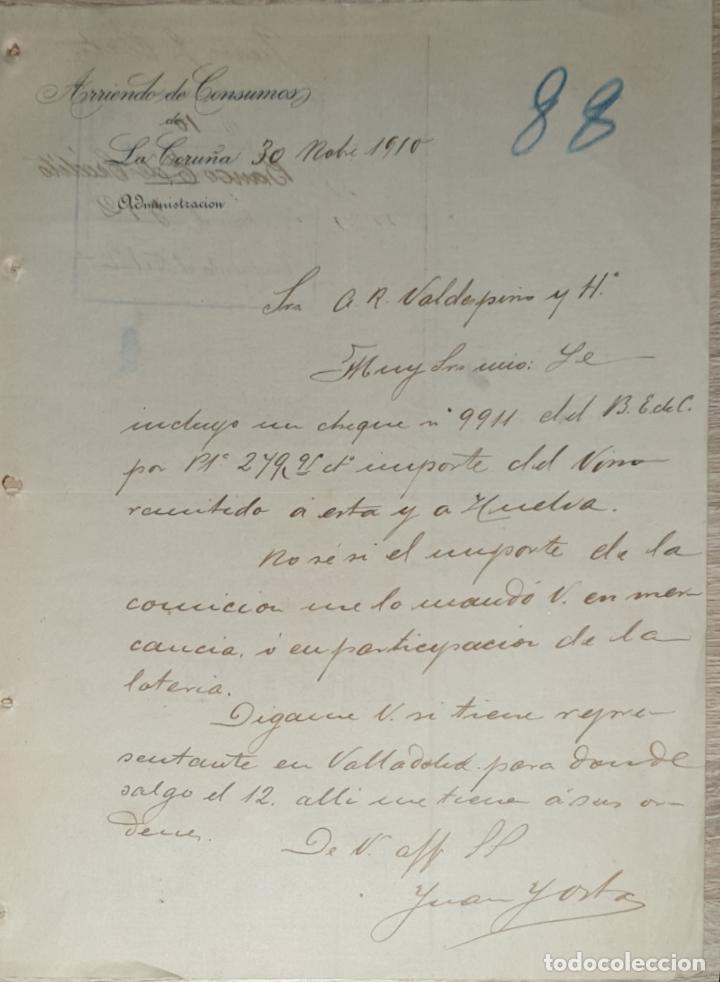 88
Arriendo de Consumos
de
La Coruña 30 Nobe 1910
Administracion
Srs A. R. Valdespino y Hº
Muy Srs mio: Le
incluyo un cheque nº 9911 del B. E de C.
por Pts 279, importe del Vino
remitido á esta y a Huelva.
No sé si el importe de la
comicion me lo mandó V. en mer
cancia, ó en participacion de la
loteria.
Digame V. si tiene repre
sentante en Valladolid para donde
salgo el 12. alli me tiene á sus or
denes.
De V. aff SS
Juan
todocoleccion.net